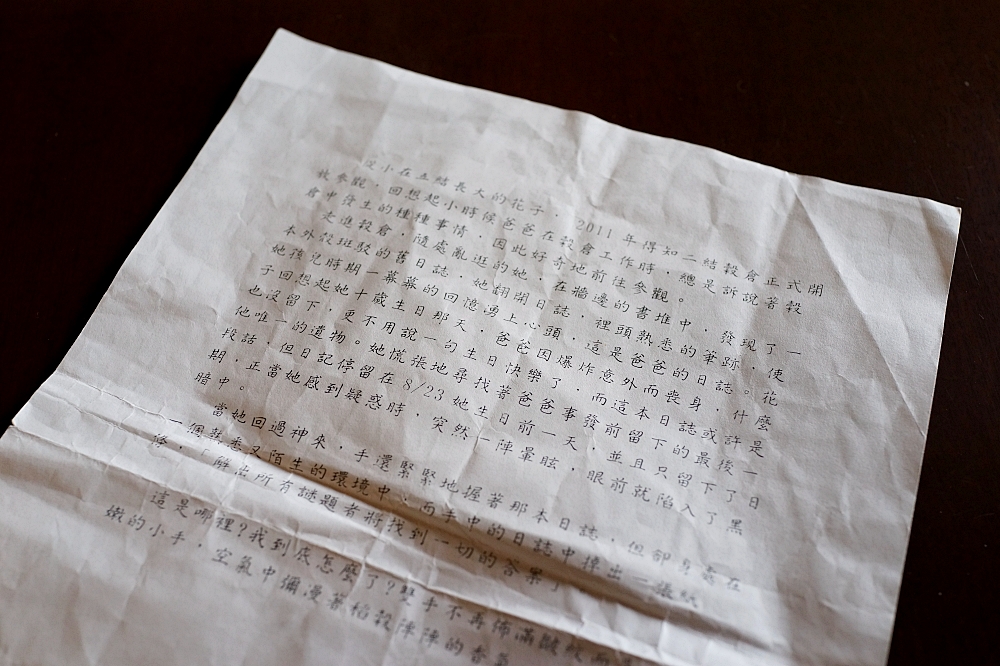 從小在五結長大的花子，2011 年得知二結穀倉正式開
放參觀，回想起小時候爸爸在穀倉工作時，總是訴說著穀
倉中發生的種種事情，因此好奇地前往參觀。
走進穀倉，隨處亂逛的她，在牆邊的書堆中，發現了一
本外殼斑駁的舊日誌，她翻開日誌，裡頭熟悉的筆跡，使
她孩兒時期一幕幕的回憶湧上心頭，這是爸爸的日誌。花
子回想起她十歲生日那天，爸爸因爆炸意外而喪身，什麼
也沒留下，更不用說一句生日快樂了，而這本日誌或許是
他唯一的遺物。她慌張地尋找著爸爸事發前留下的最後一
段話，但日記停留在 8/23 她生日前一天，並且只留下了日
期，正當她感到疑惑時，突然一陣暈眩，眼前就陷入了黑
暗中。
當她回過神來，手還緊緊地握著那本日誌，但卻身處在
一個熟悉又陌生的環境中，而手中的日誌中掉出一張紙
條，「解出所有謎題者將找到一切的答案」
這是哪裡？我到底怎麼了？雙手不再佈滿皺紋而
嫩的小手，空氣中彌漫著稻穀陣陣的香氣